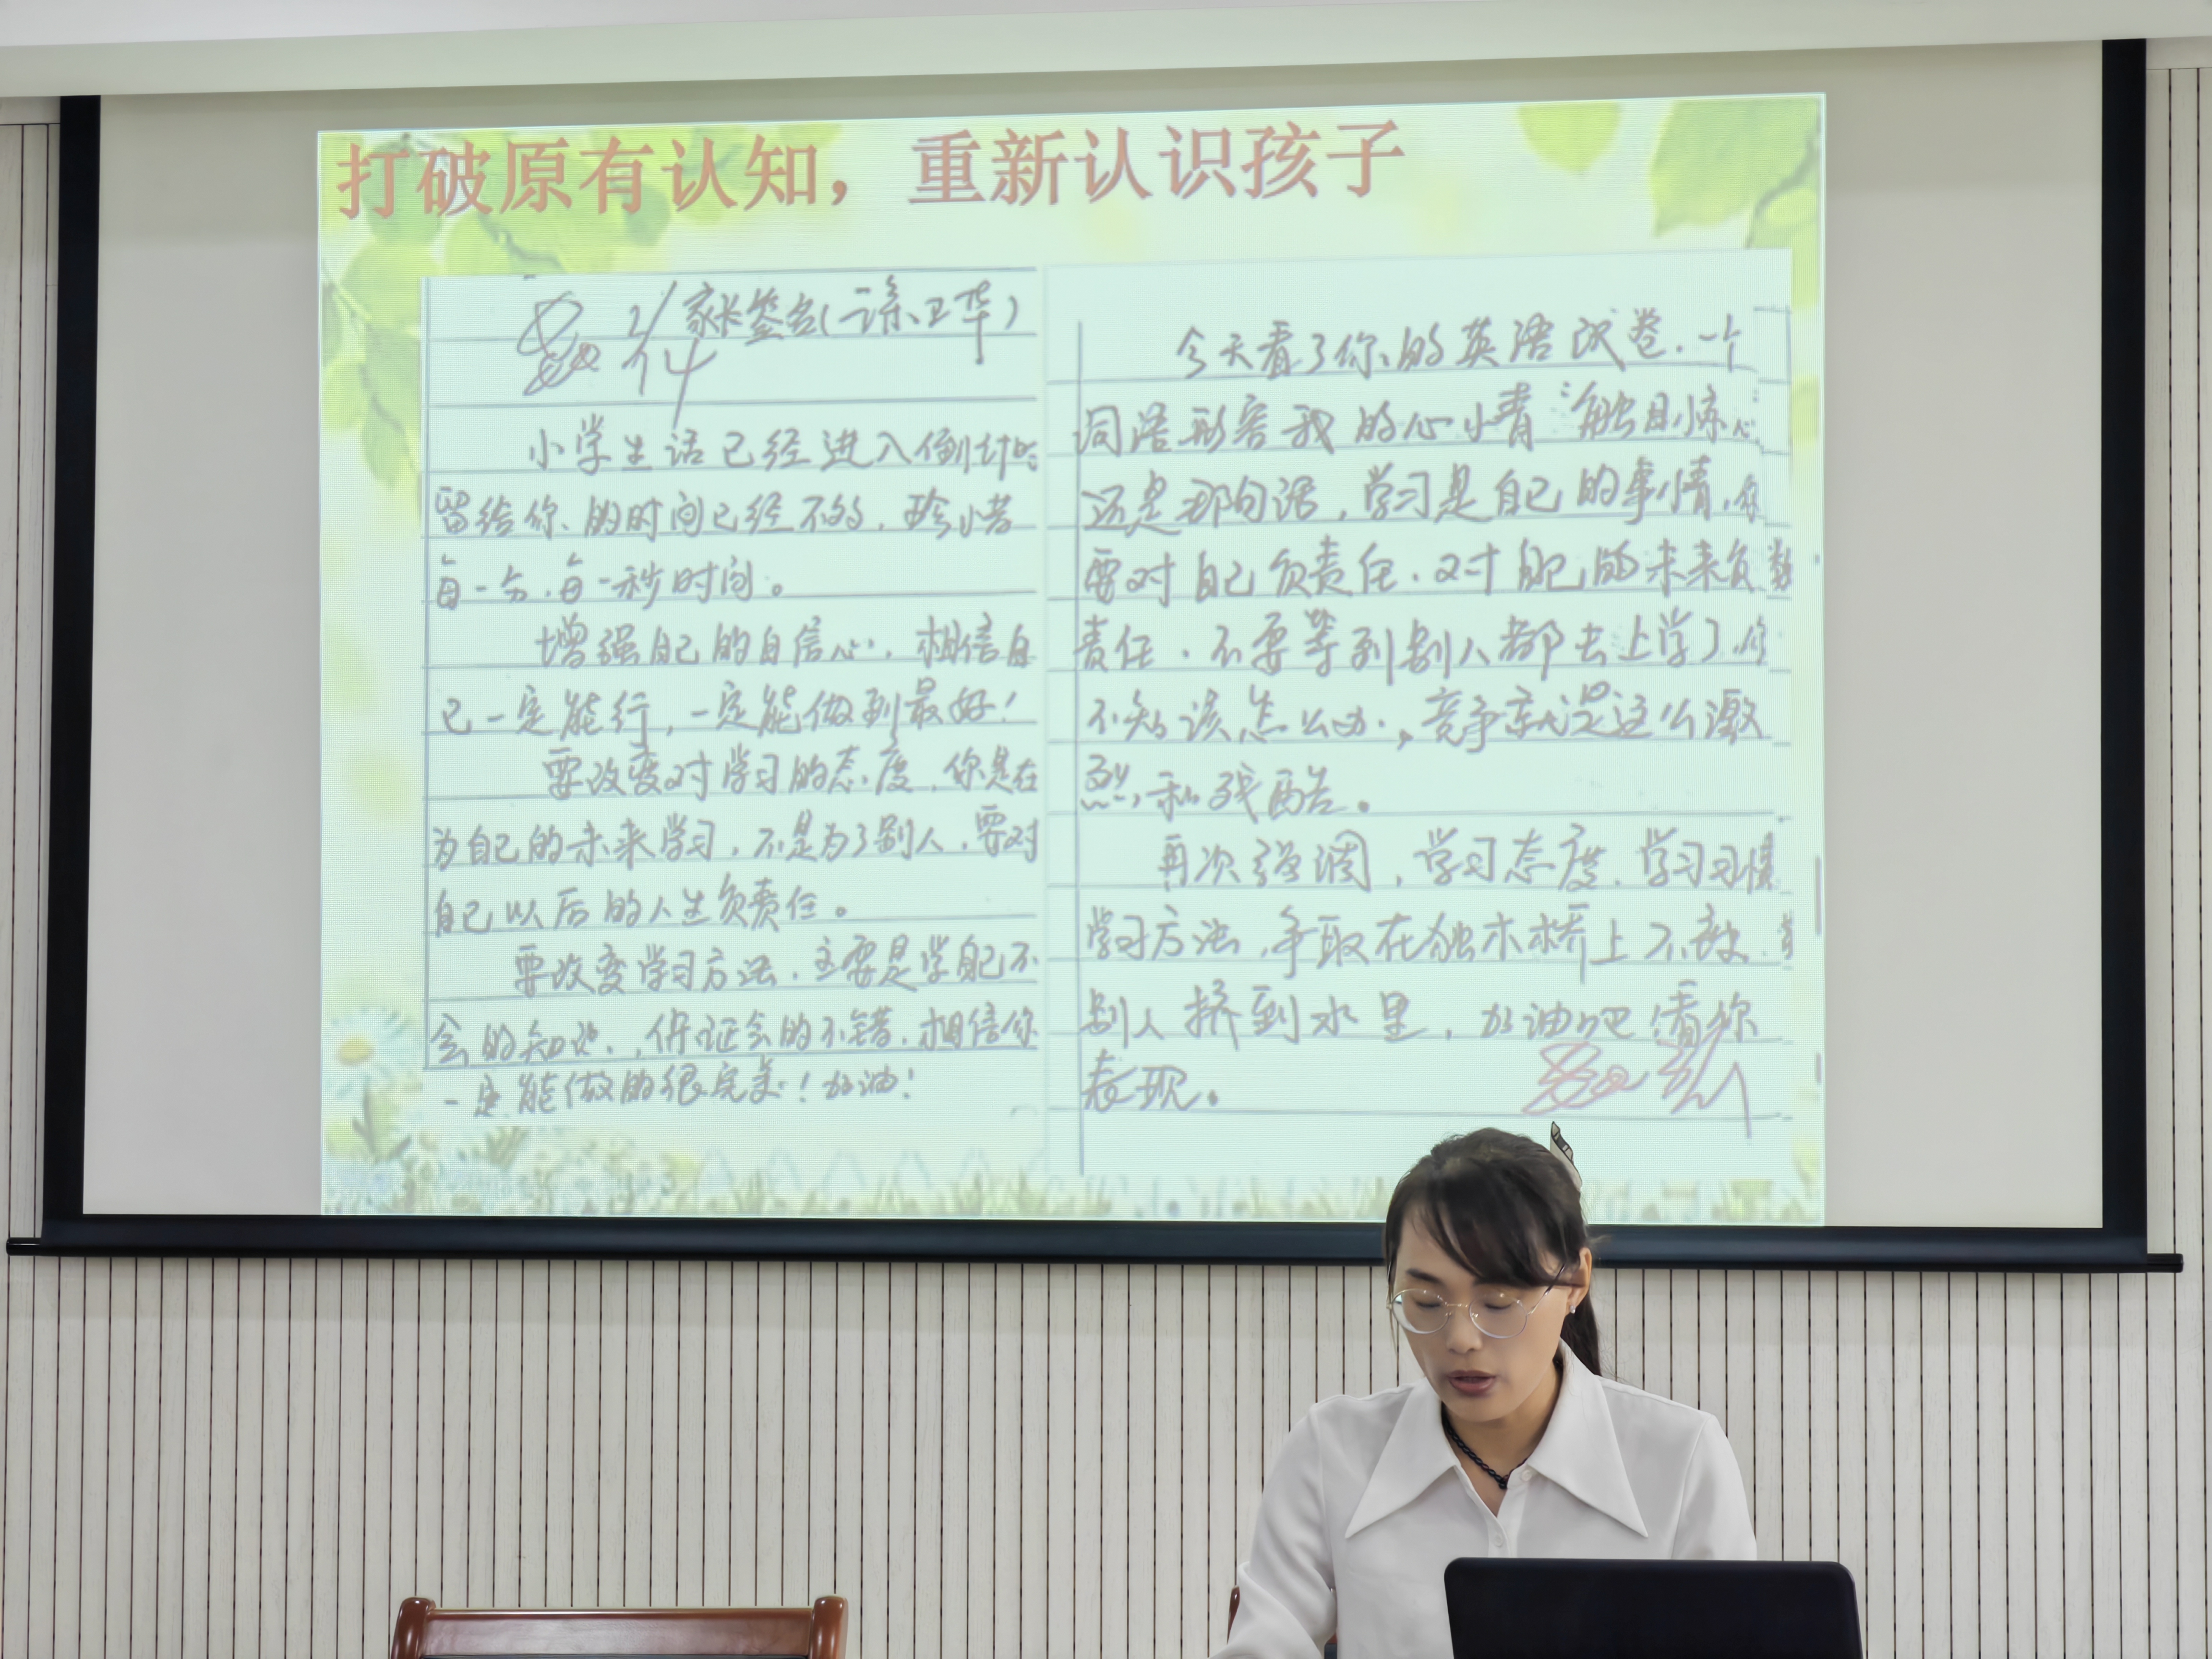 打破原有认知，重新认识孩子
家长签名(
小学生活已经进入倒计时
留给你的时间已经不多，珍惜
每一分，每一秒时间。
增强自己的自信心，相信自
己一定能行，一定能做到最好！
要改变对学习的态度，你是在
为自己的未来学习，不是为了别人，要对
自己以后的人生负责任。
要改变学习方法，主要是学自己不
会的知识，保证会的不错，相信你
一定能做的很完美！加油！
今天看了你的英语试卷，一个
词语形容我的心情“触目惊心
还是那句话，学习是自己的事情，你
要对自己负责任，对自己的未来负
责任，不要等到别人都去上学了，你
不知该怎么办，竞争就是这么激
烈和残酷。
再次强调，学习态度，学习习惯
学习方法，争取在独木桥上不被
别人挤到水里，加油吧！看你
表现。